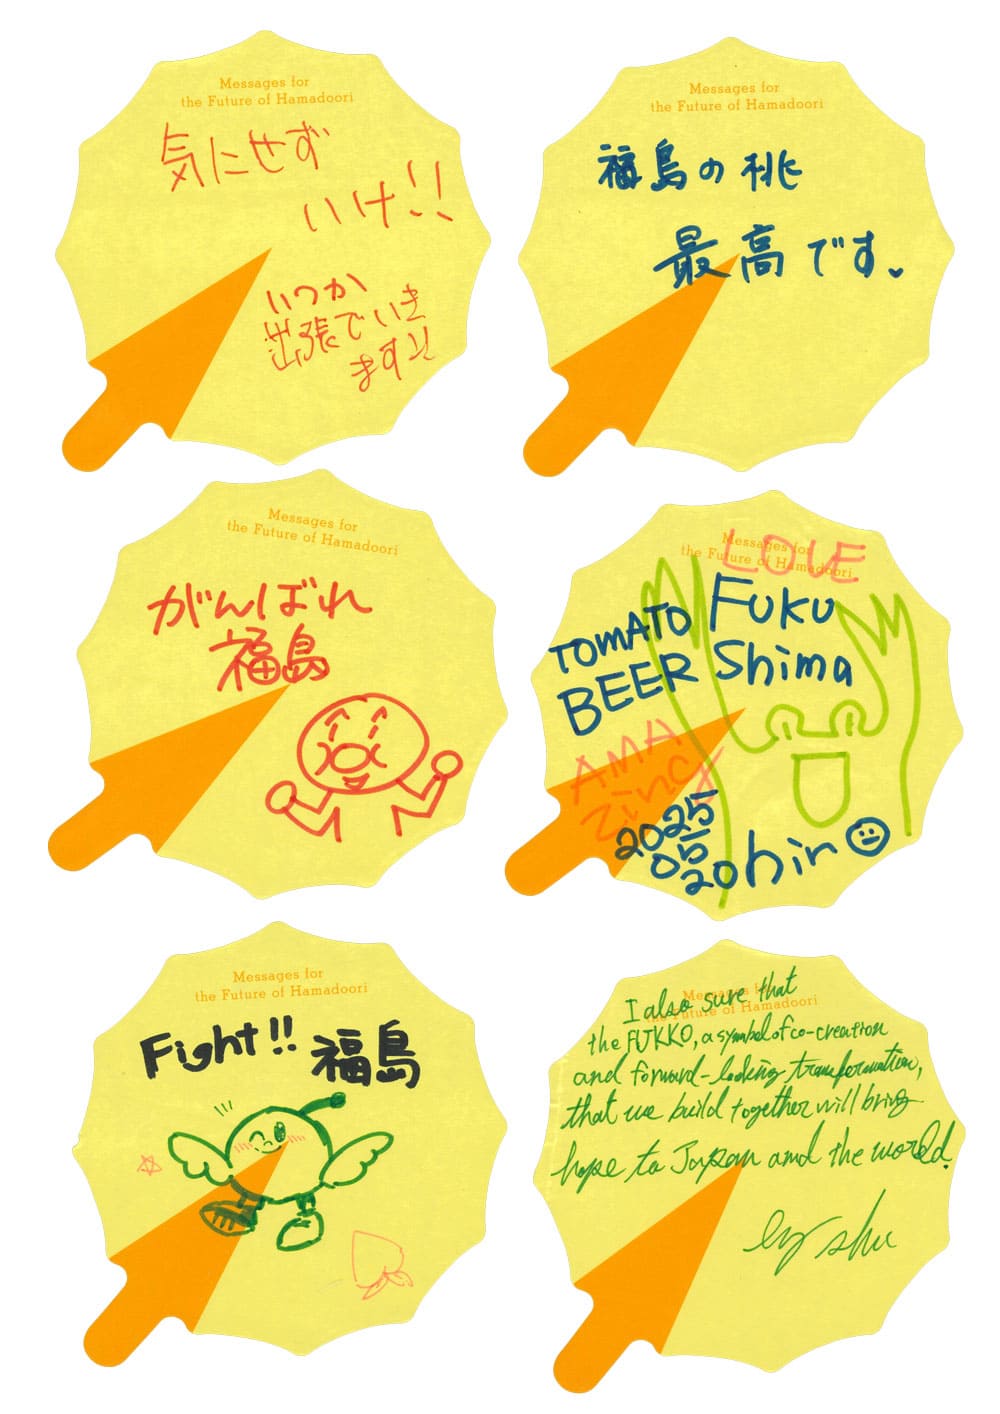 Messages for
the Future of Hamadoori
気にせず
いけ!!
いつか
出張でいき
ます!!
Messages for
the Future of Hamadoori
福島の桃
最高です。
Messages for
the Future of Hamadoori
がんばれ
福島
Messages for
the Future of Hamadoori
LOVE
TOMATO
BEER
FUKU
Shima
AMA
Zing
2025
05
20
hin
Messages for
the Future of Hamadoori
Fight!! 福島
the Future of Hamadoori
I also sure that
the FUKKO, a symbol of co-creation
and forward-looking transformation,
that we build together will bring
hope to Japan and the world.